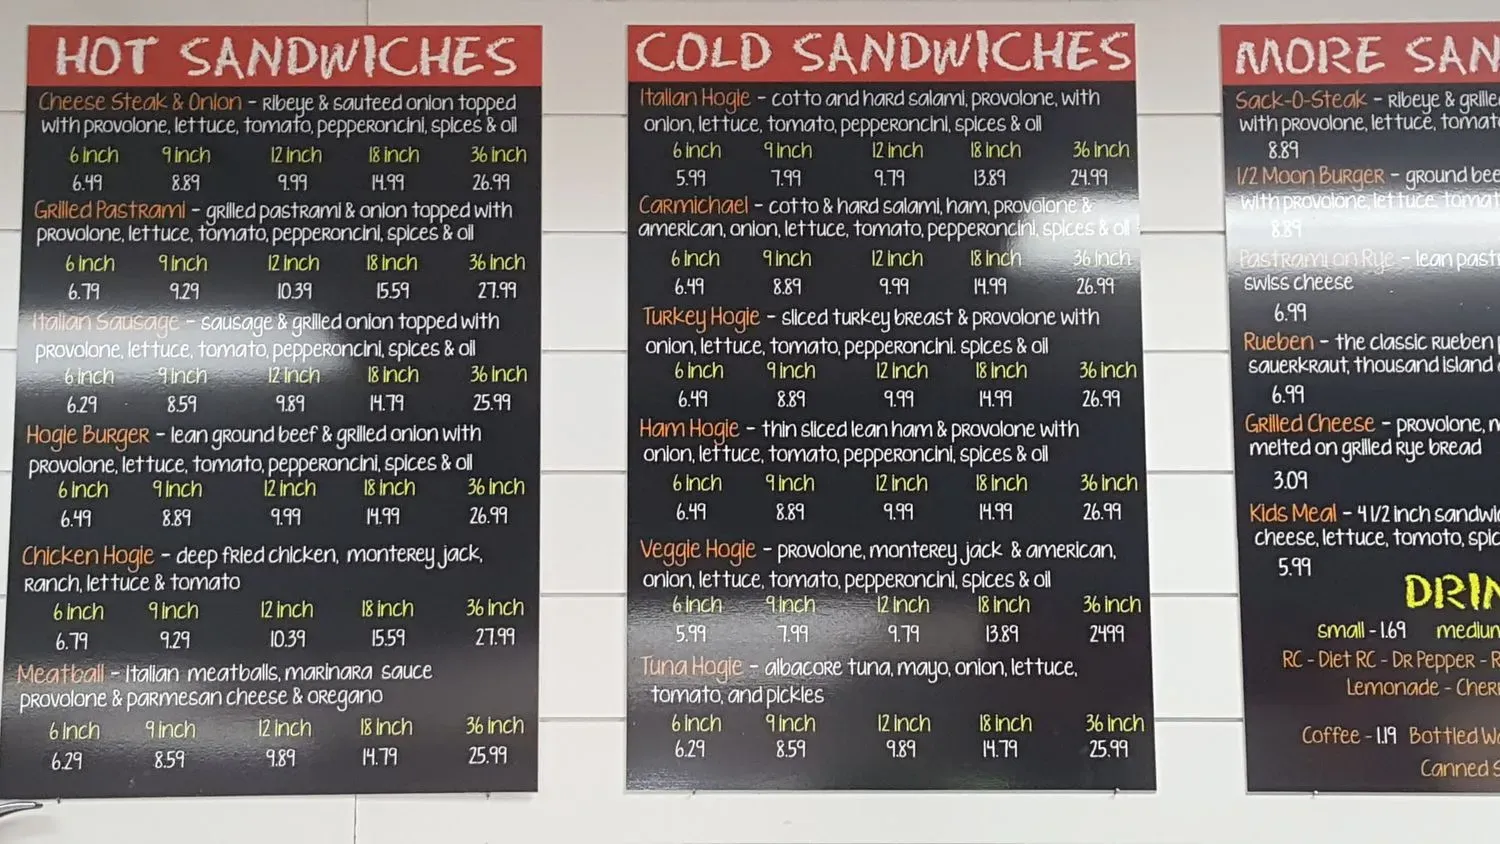 HOT SANDWICHES
Cheese Steak & Onion - Ribeye & sauteed onion topped
with provolone, lettuce, tomato, pepperoncini, spices & oil
6 inch 9 inch 12 inch 18 inch 36 inch
6.49 8.89 9.99 14.99 26.99
Grilled Pastrami - grilled pastrami & onion topped with
provolone, lettuce, tomato, pepperoncini, spices & oil
6 inch 9 inch 12 inch 18 inch 36 inch
6.79 9.29 10.39 15.59 27.99
Italian Sausage - sausage & grilled onion topped with
provolone, lettuce, tomato, pepperoncini, spices & oil
6 inch 9 inch 12 inch 18 inch 36 inch
6.29 8.59 9.89 14.79 25.99
Hogie Burger - lean ground beef & grilled onion with
provolone, lettuce, tomato, pepperoncini, spices & oil
6 inch 9 inch 12 inch 18 inch 36 inch
6.49 8.89 9.99 14.99 26.99
Chicken Hogie - deep fried chicken, monterey jack,
Ranch, lettuce & tomato
6 inch 9 inch 12 inch 18 inch 36 inch
6.79 9.29 10.39 15.59 27.99
Meatball - Italian meatballs, marinara sauce
provolone & parmesan cheese & oregano
6 inch 9 inch 12 inch 18 inch 36 inch
6.29 8.59 9.89 14.79 25.99
COLD SANDWICHES
Italian Hogie - cotto and hard salami, provolone, with
onion, lettuce, tomato, pepperoncini, spices & oil
6 inch 9 inch 12 inch 18 inch 36 inch
5.99 7.99 9.79 13.89 24.99
Carmichael - cotto & hard salami, ham, provolone &
american, onion, lettuce, tomato, pepperoncini, spices & oil
6 inch 9 inch 12 inch 18 inch 36 inch
6.49 8.89 9.99 14.99 26.99
Turkey Hogie - sliced turkey breast & provolone with
onion, lettuce, tomato, pepperoncini. spices & oil
6 inch 9 inch 12 inch 18 inch 36 inch
6.49 8.89 9.99 14.99 26.99
Ham Hogie - thin sliced lean ham & provolone with
onion, lettuce, tomato, pepperoncini, spices & oil
6 inch 9 inch 12 inch 18 inch 36 inch
6.49 8.89 9.99 14.99 26.99
Veggie Hogie - provolone, monterey jack & american,
onion, lettuce, tomato, pepperoncini, spices & oil
6 inch 9 inch 12 inch 18 inch 36 inch
5.99 7.99 9.79 13.89 2499
Tuna Hogie - albacore tuna, mayo, onion, lettuce,
tomato, and pickles
6 inch 9 inch 12 inch 18 inch 36 inch
6.29 8.59 9.89 14.79 25.99
MORE SAN
Sack-O-Steak - Ribeye & grille
with provolone, lettuce, tomat
8.89
1/2 Moon Burger - ground bee
with provolone, lettuce, tomat
8.89
Pastrami on Rye - lean past
swiss cheese
6.99
Rueben - the classic Rueben
sauerkraut, thousand island
6.99
Grilled Cheese - provolone,
melted on grilled Rye bread
3.09
Kids Meal - 4 1/2 inch sandwi
cheese, lettuce, tomoto, spic
5.99
DRIN
small - 1.69 medium
RC - Diet RC - Dr Pepper - R
Lemonade - Cher
Coffee - 1.19 Bottled Wa
Canned S